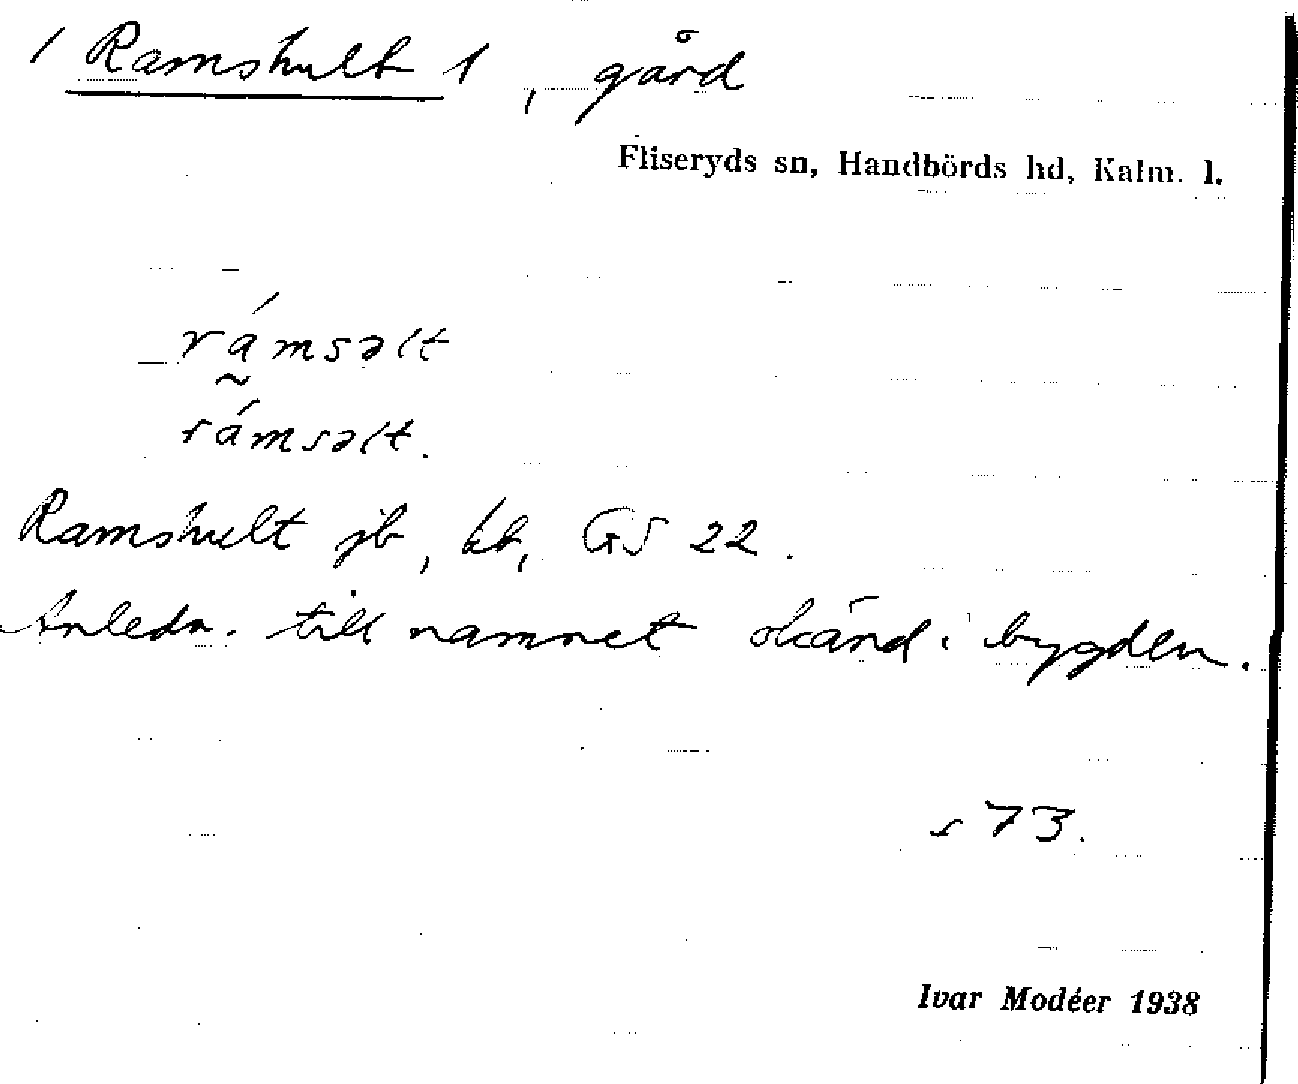 / Ramshult 1, gård
Fliseryds sn, Handbörds hd, Kalm. l.
rámsəlt
rámsəlt.
Ramshult jb, kb, GS 22.
Anledn. till namnet okänd i bygden.
s 73.
Ivar Modéer 1938